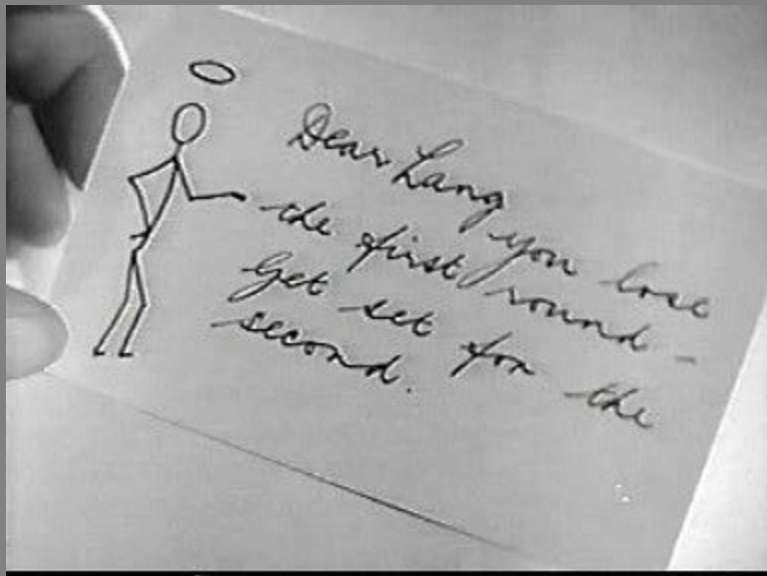 Dear Lang you lose
the first round -
Get set for the
second.